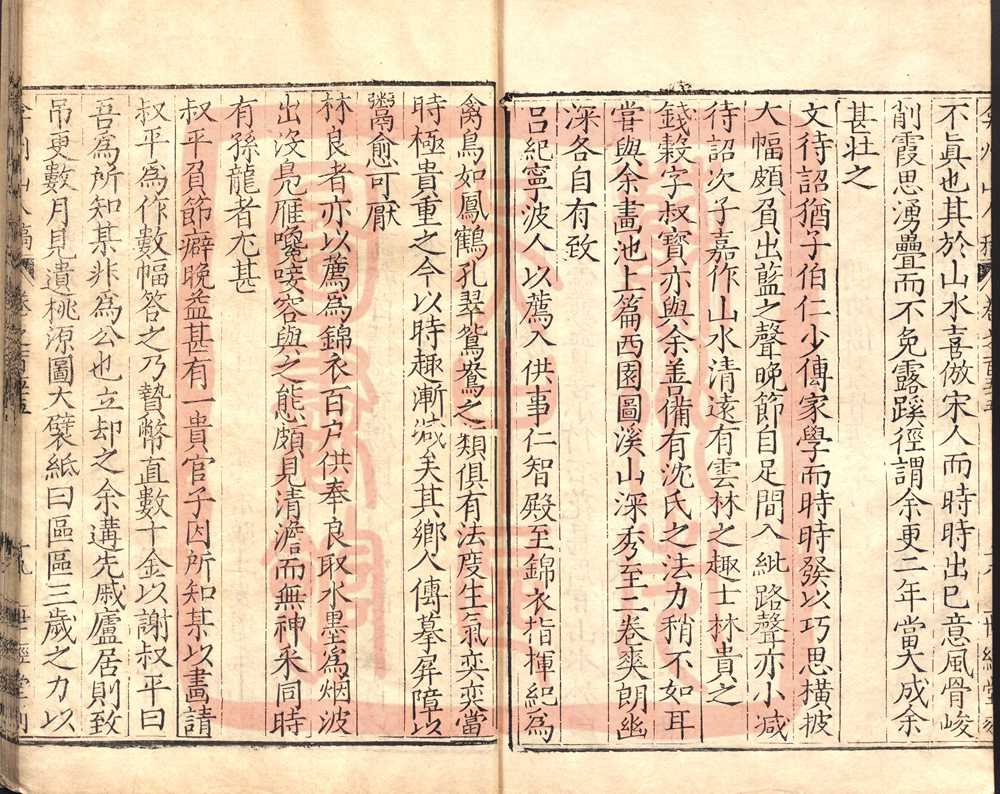 不眞也其於山水喜倣宋人而時時出己意風骨峻
削霞思湧疊而不免露蹊徑謂余更二年當大成余
甚壯之
文待詔猶子伯仁少傳家學而時時發以巧思橫披
大幅頗負出藍之聲晚節自足間入紕路聲亦小減
待詔次子嘉作山水清遠有雲林之趣士林貴之
錢穀字叔寶亦與余善備有沈氏之法力稍不如耳
嘗與余畫池上篇西園圖溪山深秀至二卷爽朗幽
深各自有致
呂紀寧波人以薦入供事仁智殿至錦衣指揮紀為
禽鳥如鳳鶴孔翠鴛鴦之類俱有法度生氣奕奕當
時極貴重之今以時趣漸減矣其鄉人傳摹屏障以
鬻愈可厭
林良者亦以薦為錦衣百戶供奉良取水墨為烟波
出沒鳧雁嚵唼容與之態頗見清澹而無神采同時
有孫龍者尤甚
叔平負節癖晚益甚有一貴官子因所知某以畫請
叔平為作數幅答之乃贄幣直數十金以謝叔平曰
吾為所知某非為公也立却之余遘先戚廬居則致
吊更數月見遺桃源圖大襞紙曰區區三歲之力以